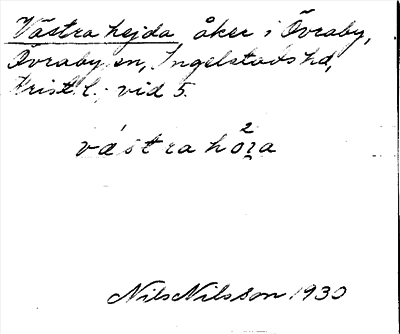 Västra hejda åker i Övraby,
Övraby sn, Ingelstads hd,
Krist. l.; vid 5.
västra höza
Nils Nilsson 1930